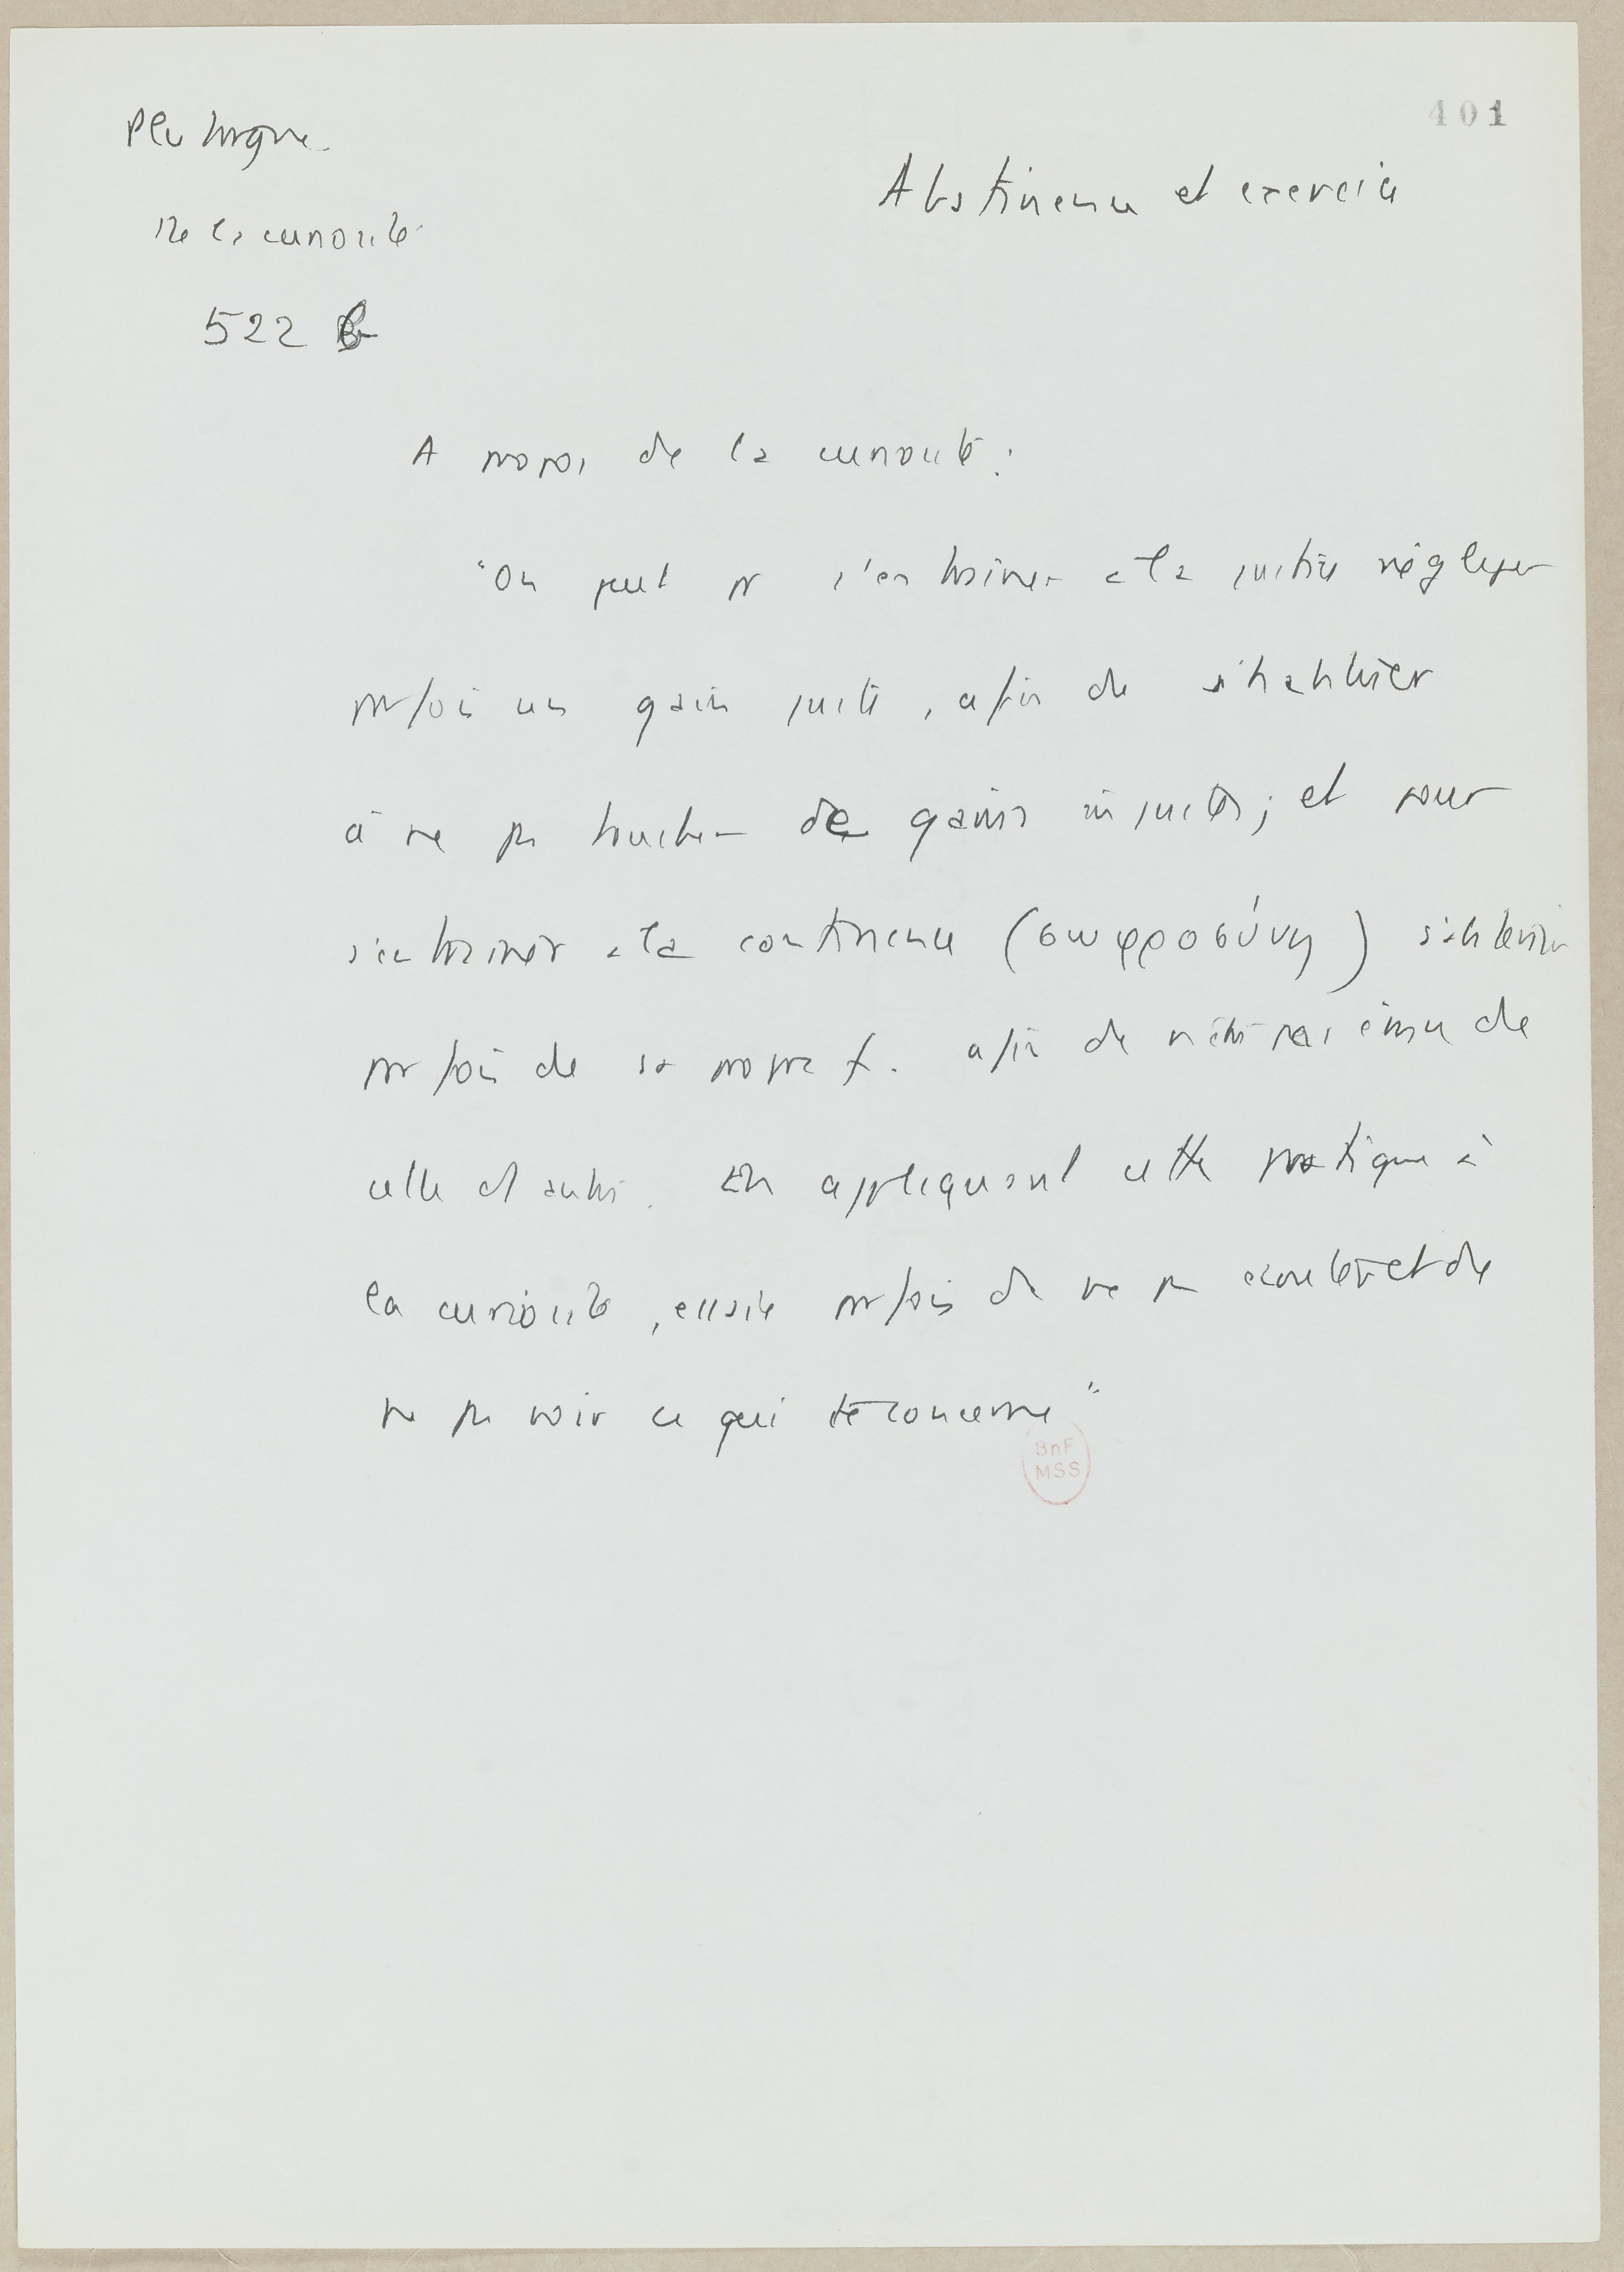 Plutarque
401
Abstinence et exercice
De la curiosité
522 B
A propos de la curiosité :
"On peut pr s'entrainer à la justice négliger
parfois un gain juste, afin de s'habituer
à ne pas toucher de gains injustes ; et pour
s'entrainer à la continence (σωφροσύνη) s'abstenir
parfois de sa propre f. afin de n'être pas ému de
celle d'autrui. En appliquant cette pratique à
la curiosité, essaie parfois de ne pas écouter et de
ne pas voir ce qui te concerne"
BnF
MSS